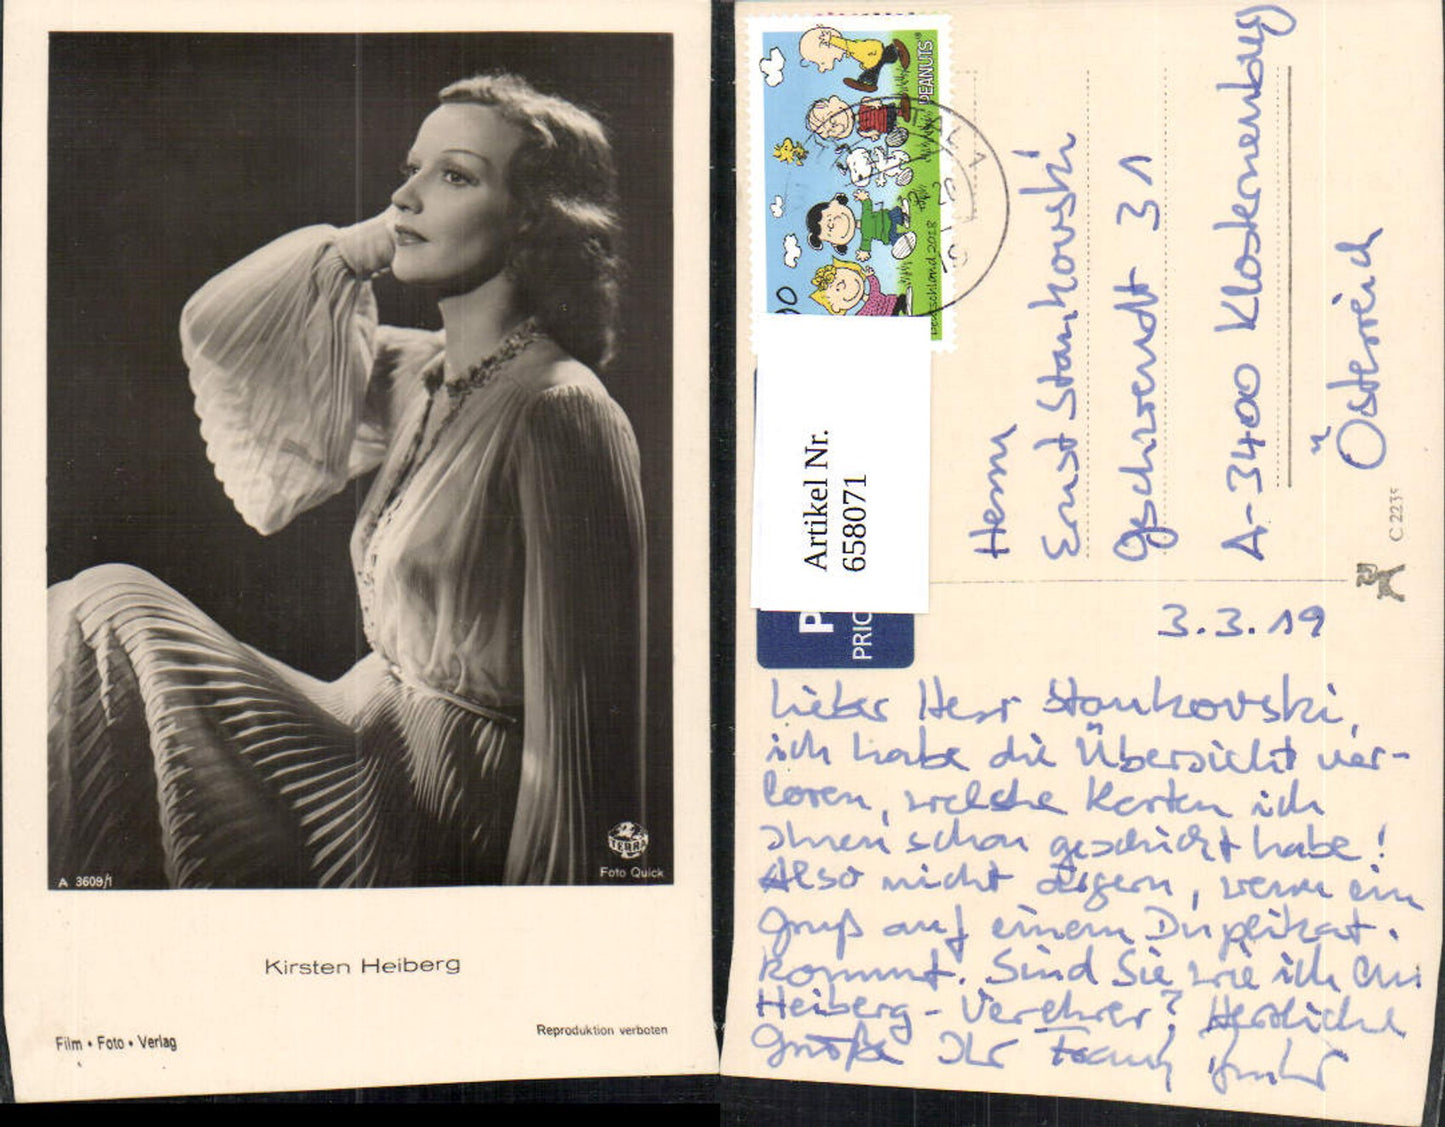 TERRA
Foto Quick
A 3609/1
Kirsten Heiberg
Film • Foto • Verlag
Reproduktion verboten
PEANUTS
Deutschland 2018
Artikel Nr.
658071
PRIO
Herrn
Ernst Stankovski
Geschwendt 31
A-3400 Klosterneuburg
Österreich
C 2235
3.3.19
Lieber Herr Stankovski,
ich habe die Übersicht ver-
loren, welche Karten ich
Ihnen schon geschickt habe!
Also nicht ärgern, wenn ein
Gruß auf einem Duplikat
kommt. Sind Sie wie ich ein
Heiberg-Verehrer? Herzliche
Grüße Ihr Frank